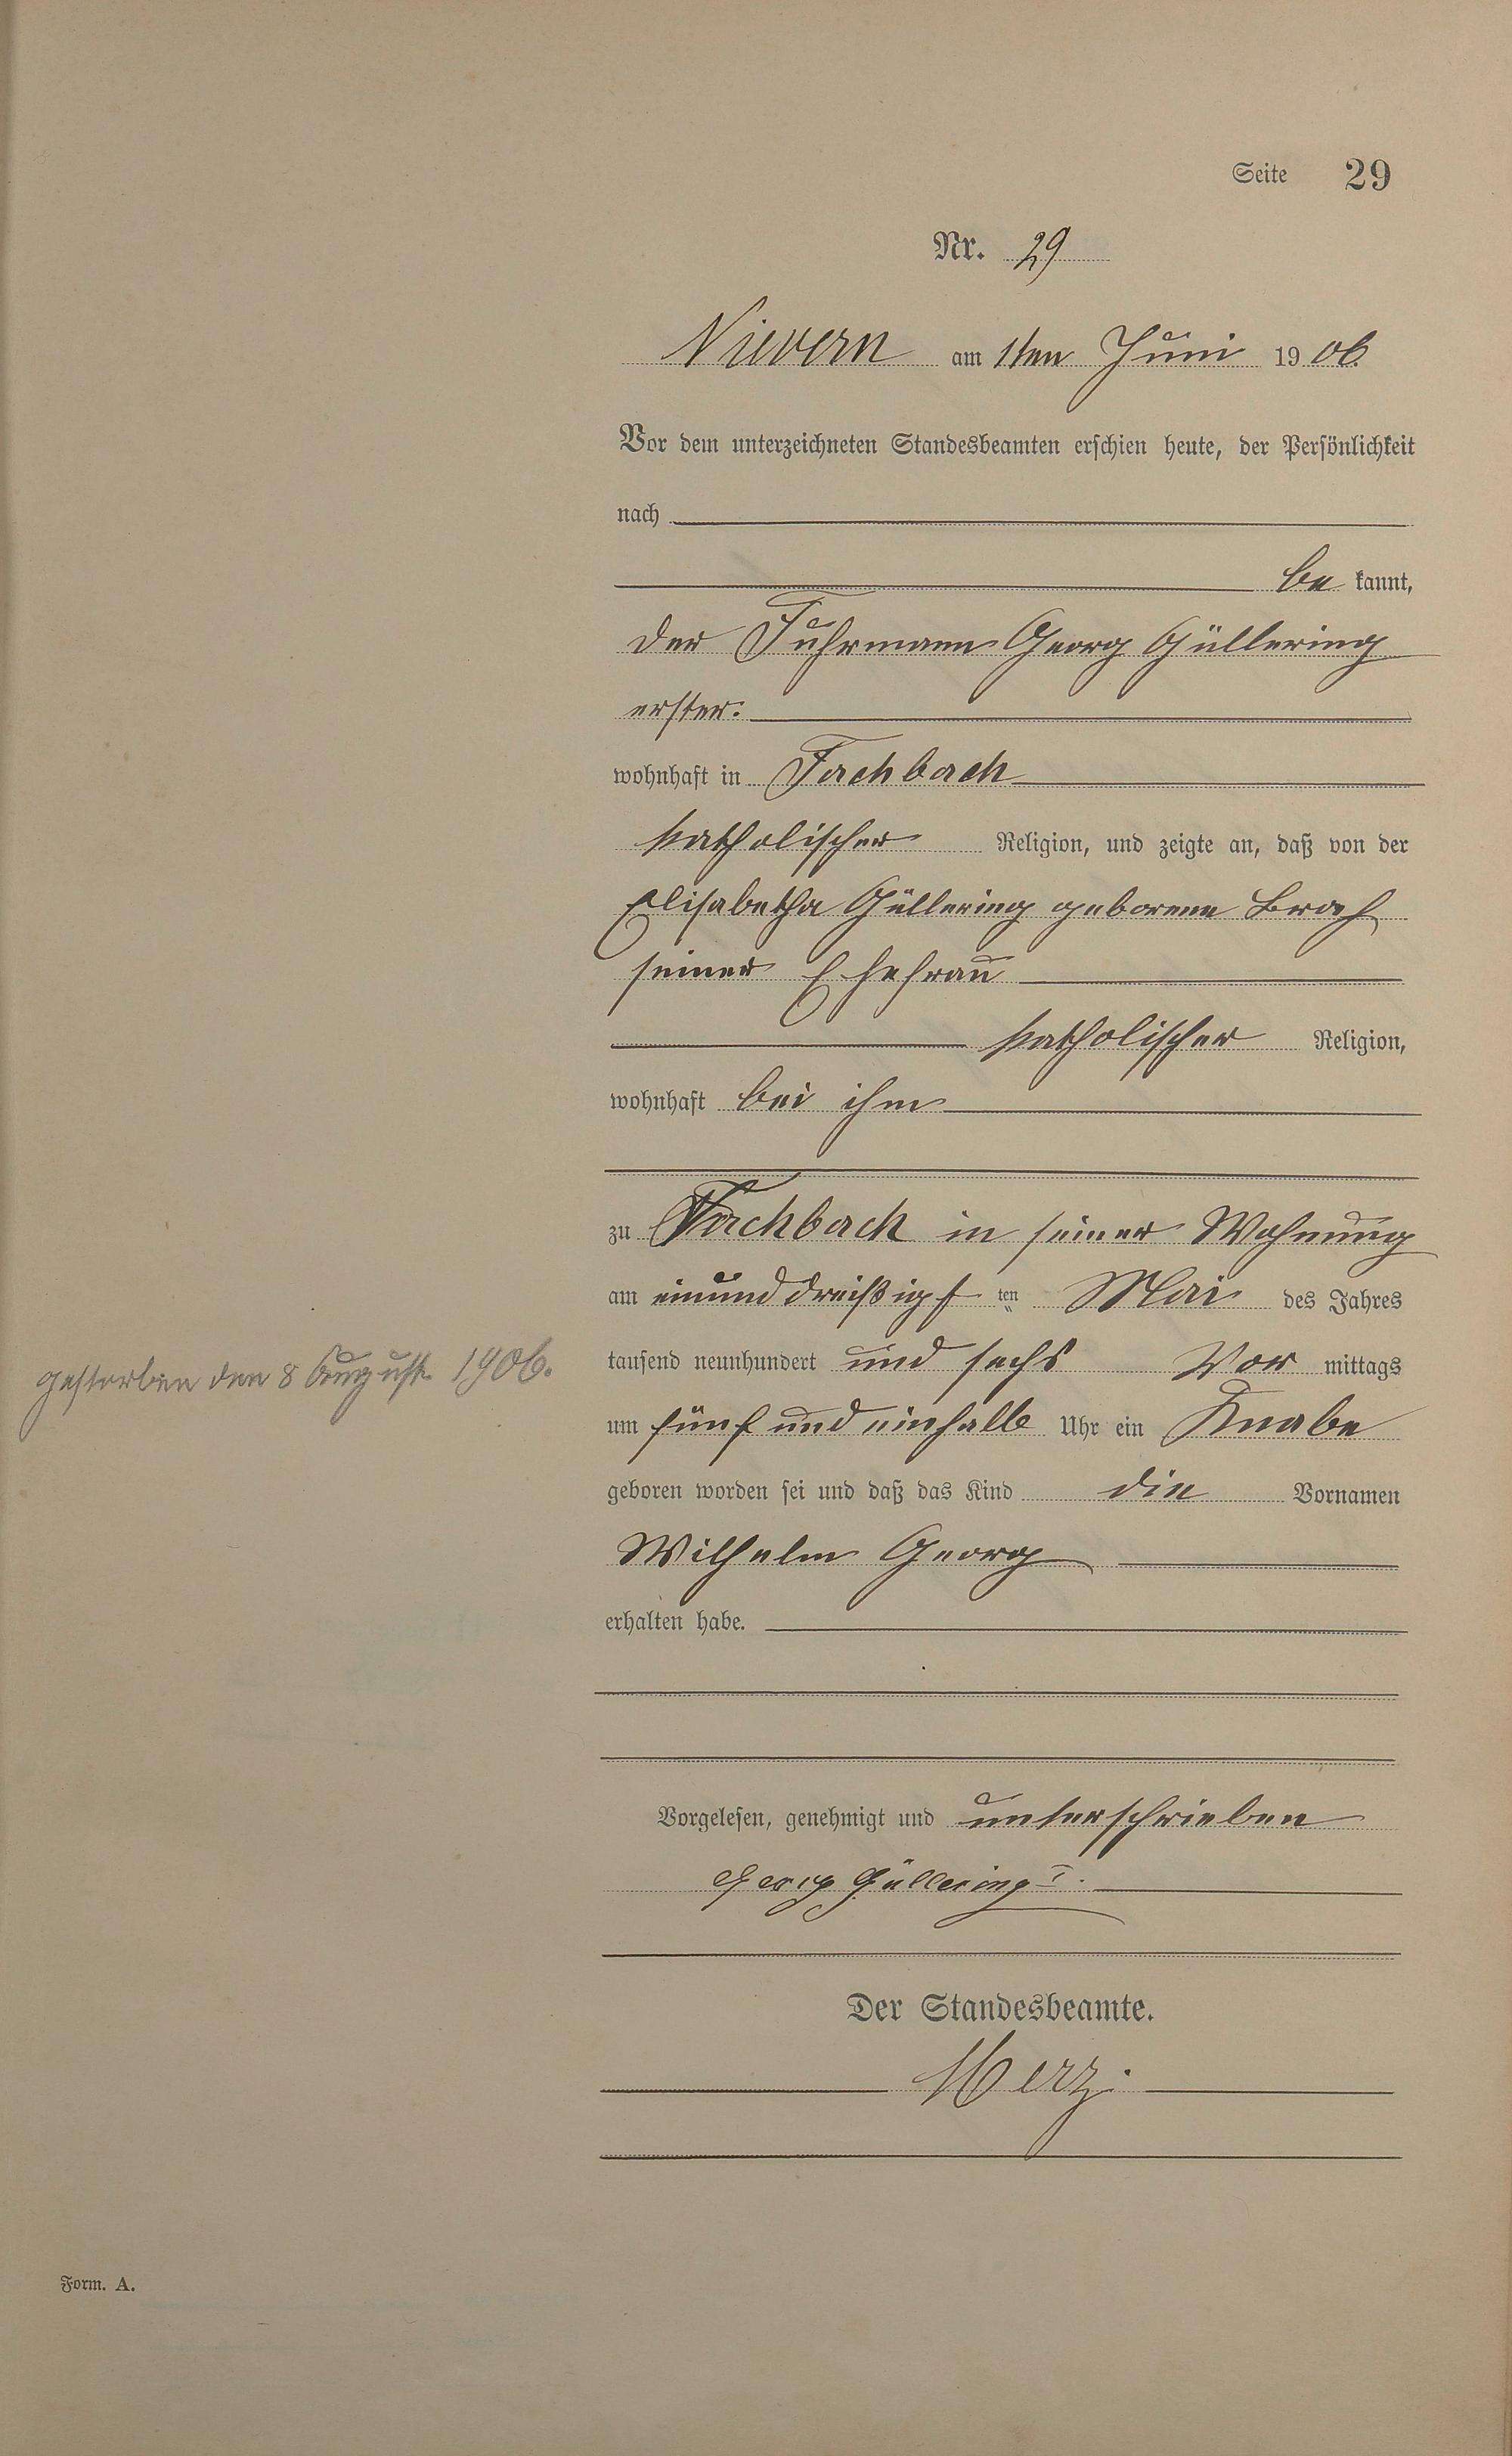 Seite 29
Nr. 29
Nievern am 1ten Juni 1906.
Vor dem unterzeichneten Standesbeamten erschien heute, der Persönlichkeit
nach
be kannt,
der Fuhrmann Georg Güllering
erster.
wohnhaft in Fachbach
katholischer Religion, und zeigte an, daß von der
Elisabetha Güllering geborene
seiner Ehefrau
katholischer Religion,
wohnhaft bei ihm
zu Fachbach in seiner Wohnung
am einunddreißigsten Mai des Jahres
tausend neunhundert und sechs Vor mittags
gestorben den 8 August 1906.
um fünf und einhalb Uhr ein Knabe
geboren worden sei und daß das Kind die Vornamen
Wilhelm Georg
erhalten habe.
Vorgelesen, genehmigt und unterschrieben
Georg Güllering I.
Der Standesbeamte.
Merz.
Form. A.